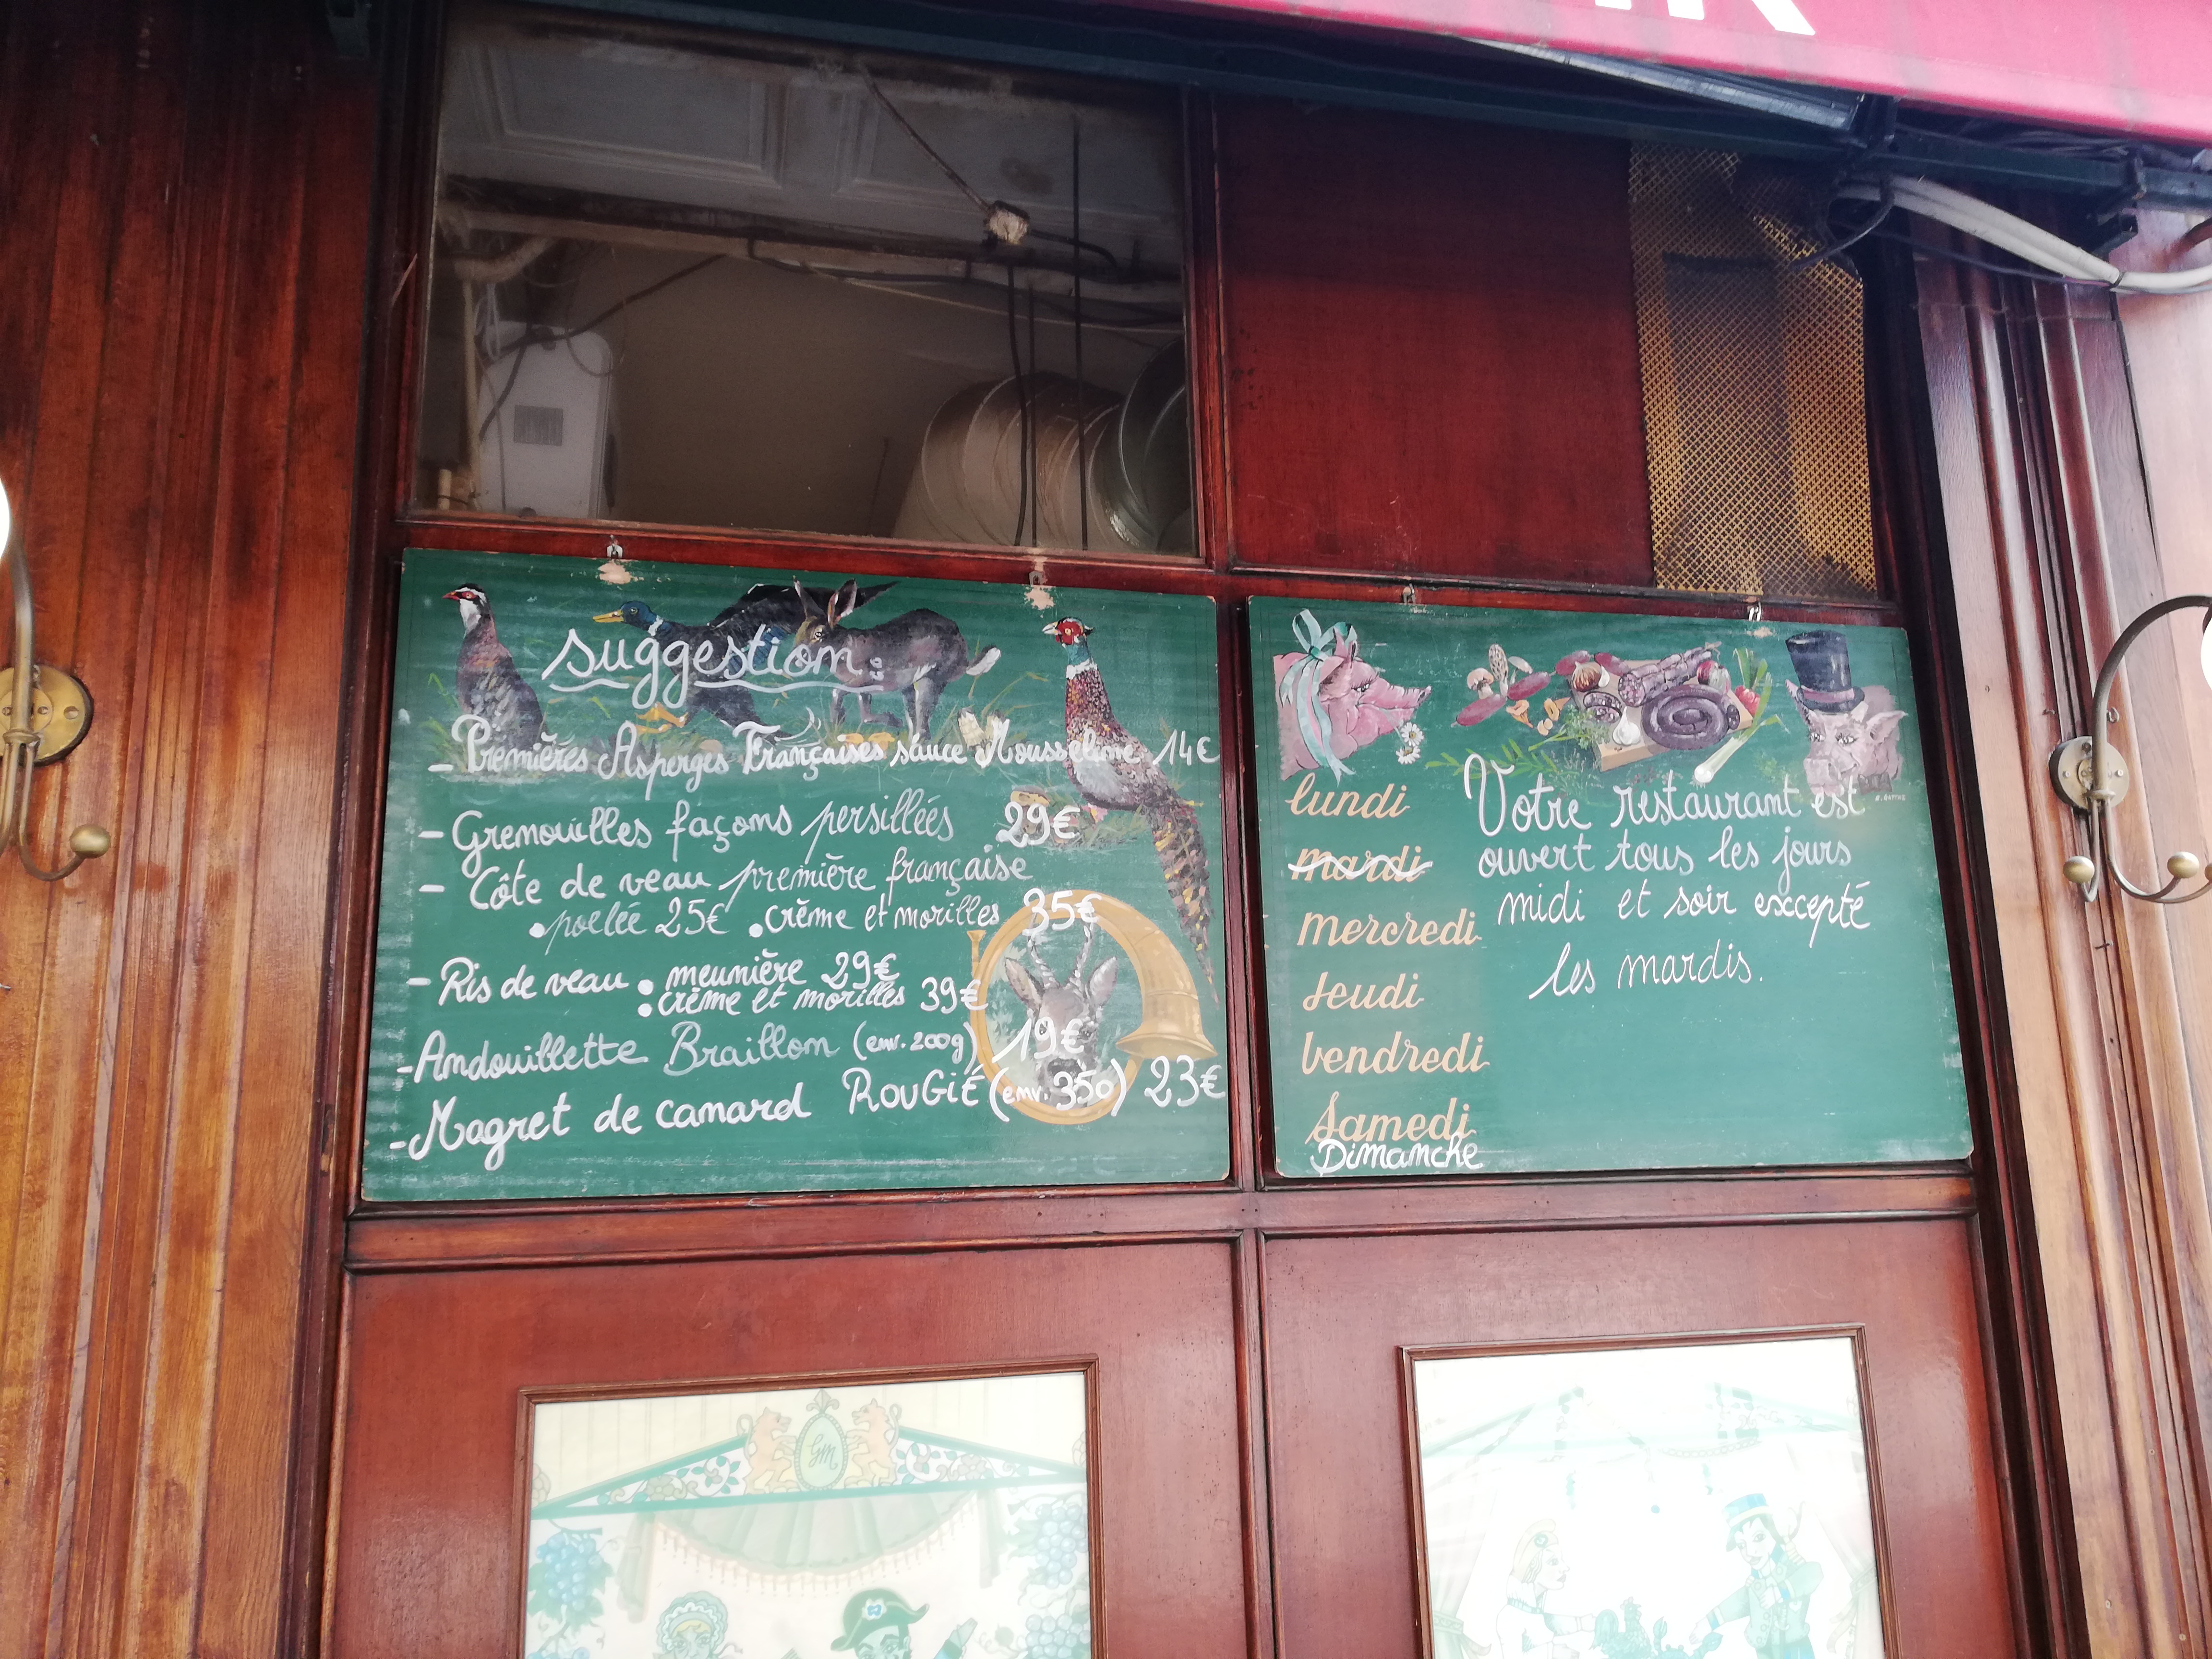 suggestion:
- Premières Asperges Françaises sauce Mousseline 14€
- Grenouilles façons persillées 29€
- Côte de veau première française
• poelée 25€ • crème et morilles 35€
- Ris de veau • meunière 29€
• crème et morilles 39€
- Andouillette Braillon (env. 200g) 19€
- Magret de canard ROUGIÉ (env. 350) 23€
lundi
mardi
mercredi
Jeudi
Vendredi
Samedi
Dimanche
Votre restaurant est
ouvert tous les jours
midi et soir excepté
les mardis.
GM